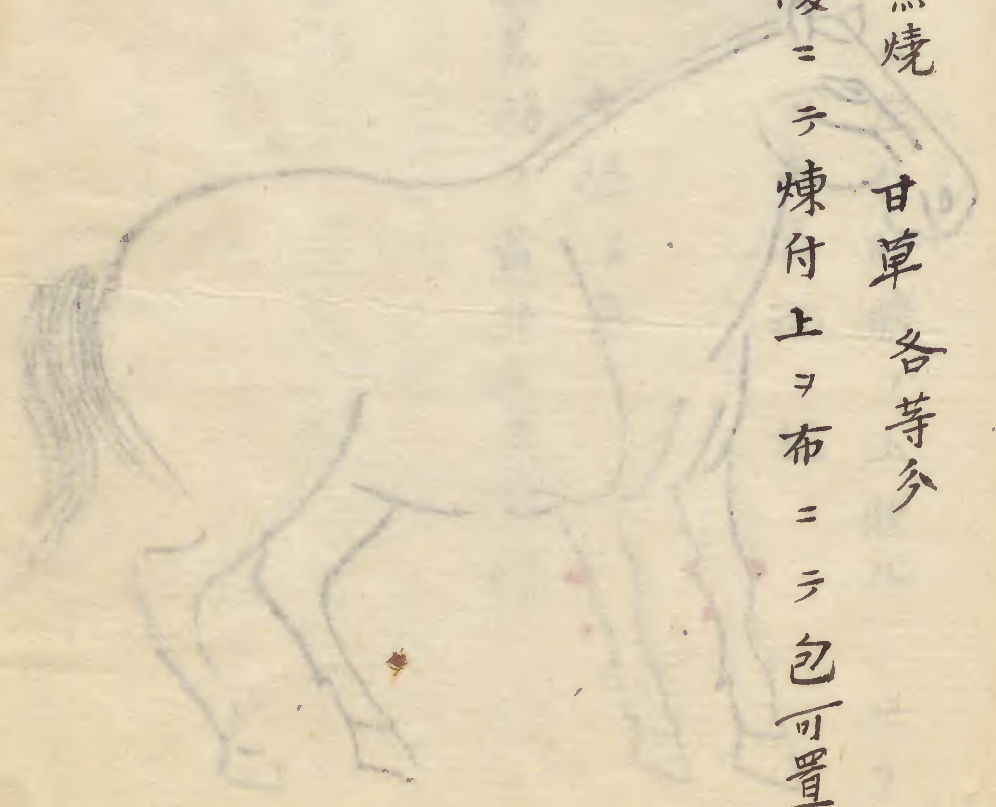 燒 甘草 各等分
ニテ煉付上ヲ布ニテ包可置